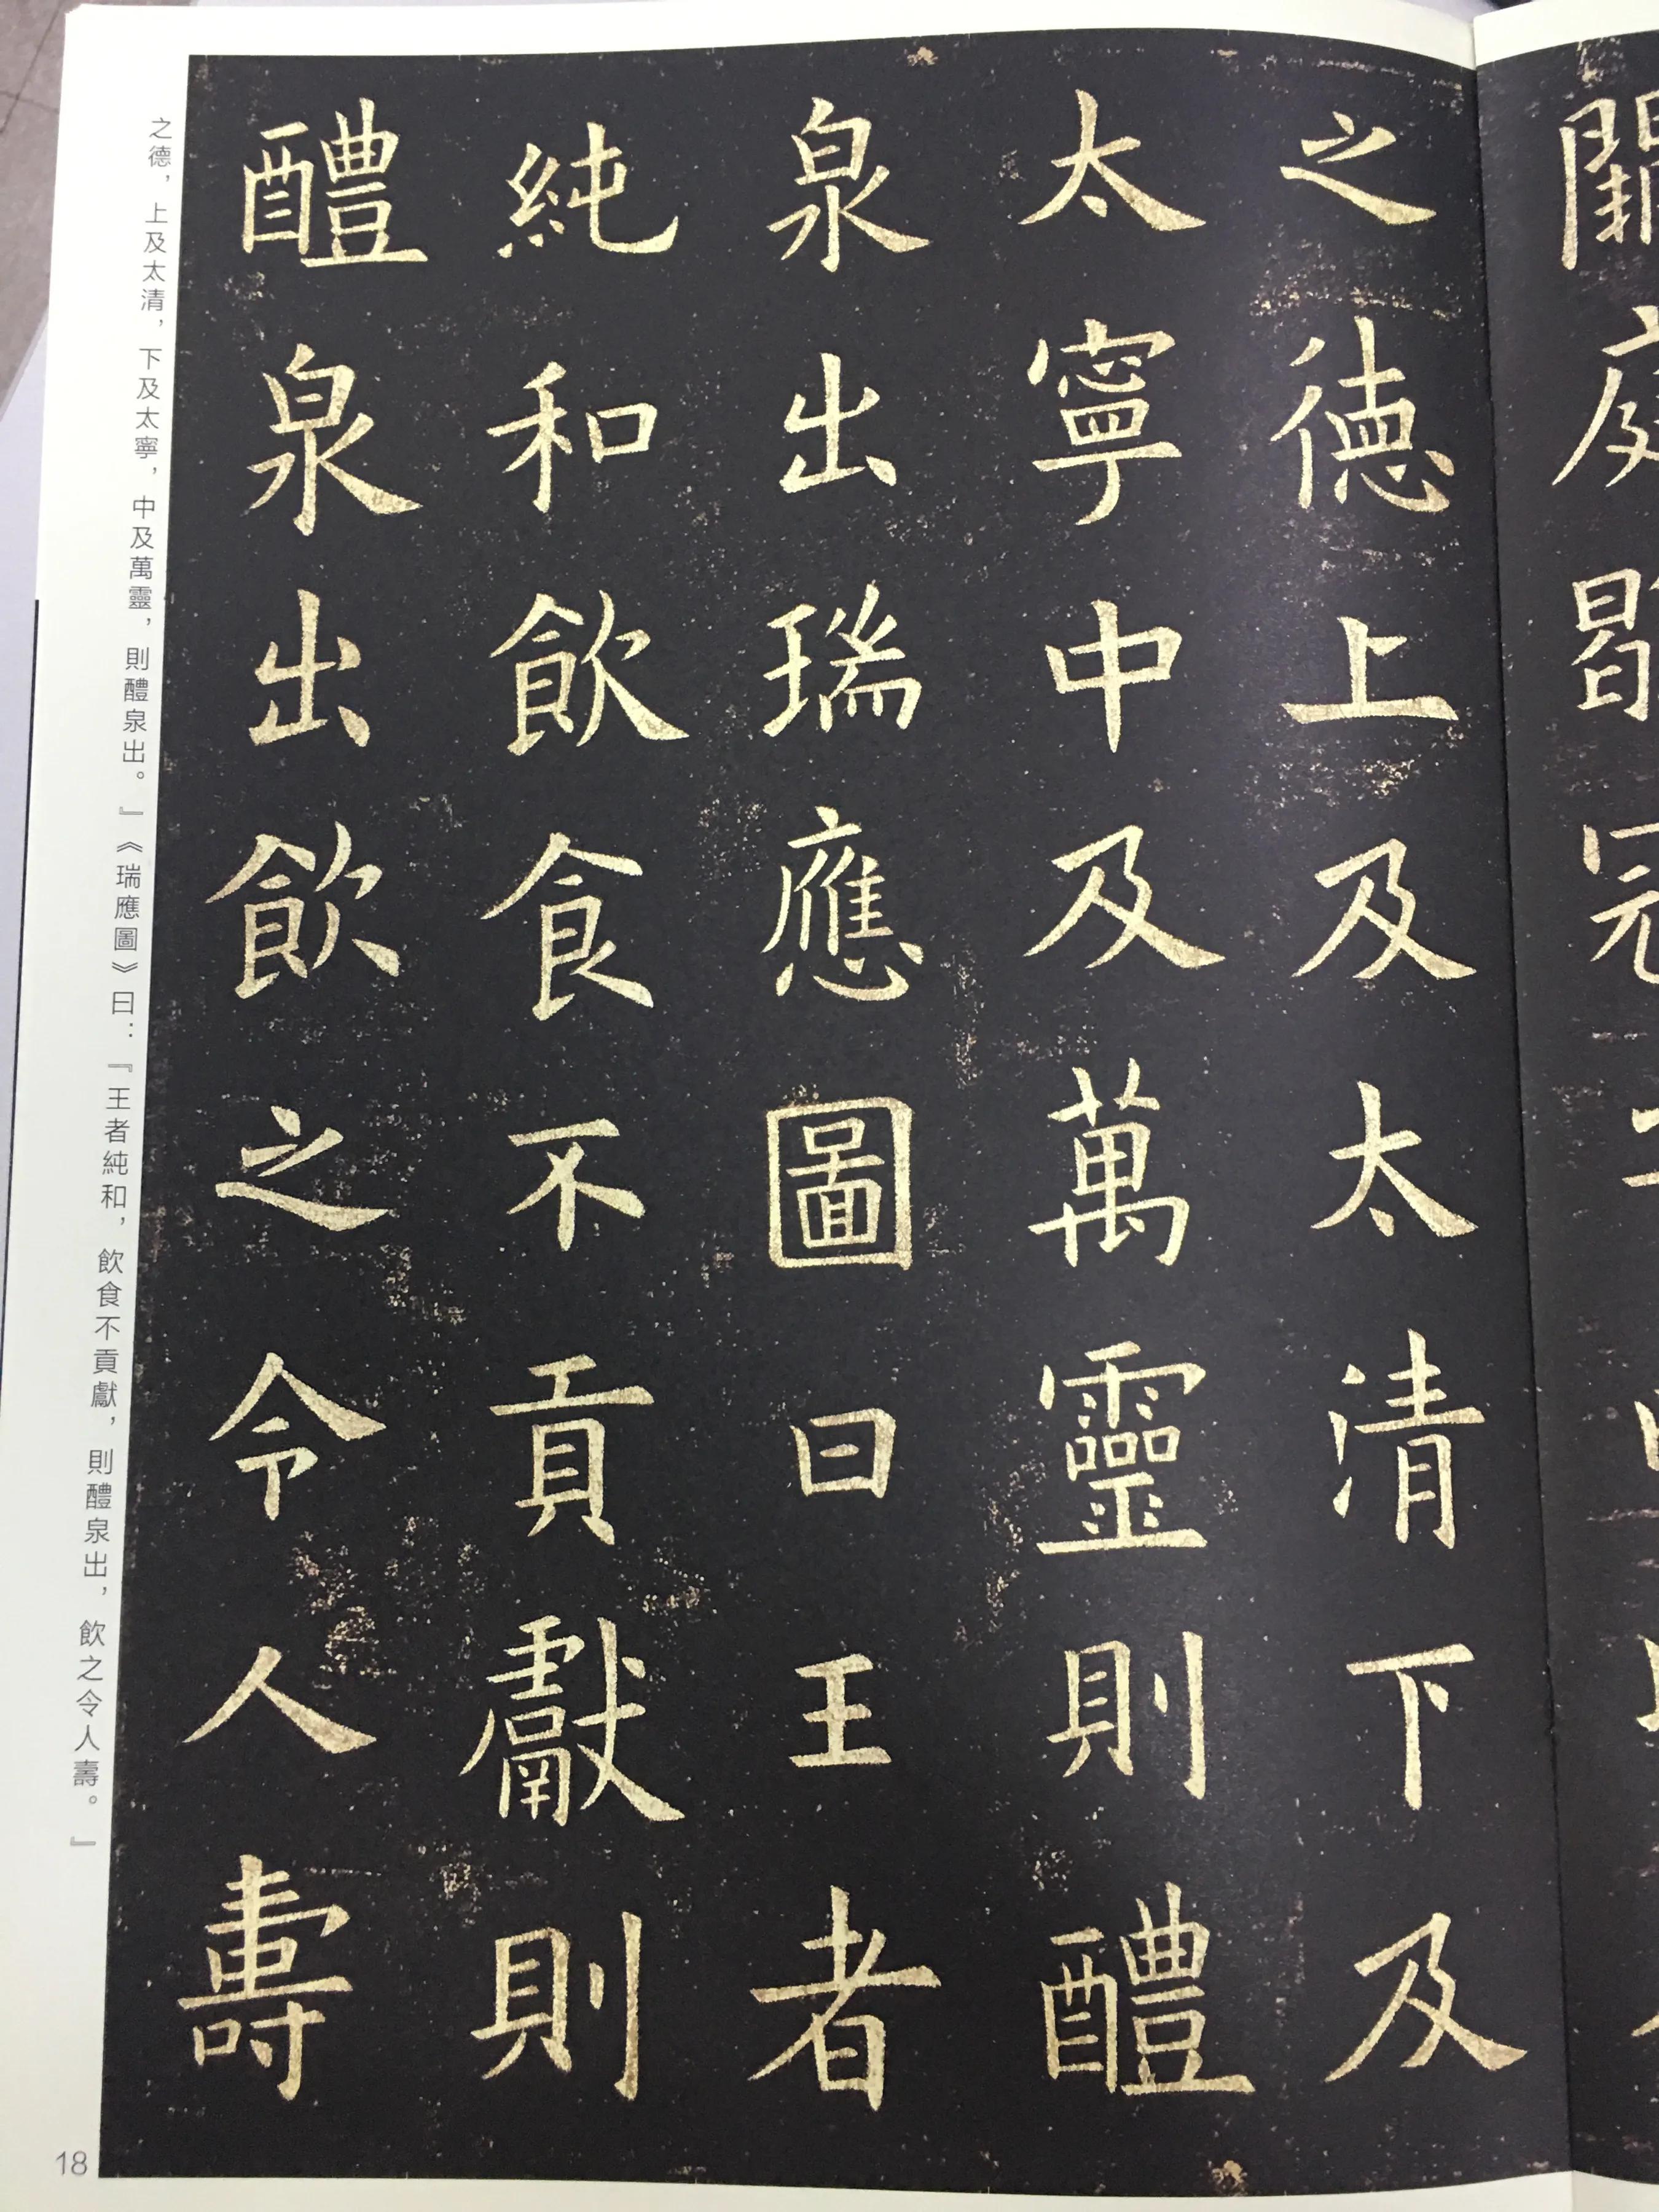 之德上及太清下及
太寧中及萬靈則醴
泉出瑞應圖曰王者
純和飲食不貢獻則
醴泉出飲之令人壽
之德，上及太清，下及太寧，中及萬靈，則醴泉出。』《瑞應圖》曰：『王者純和，飲食不貢獻，則醴泉出，飲之令人壽。』
18